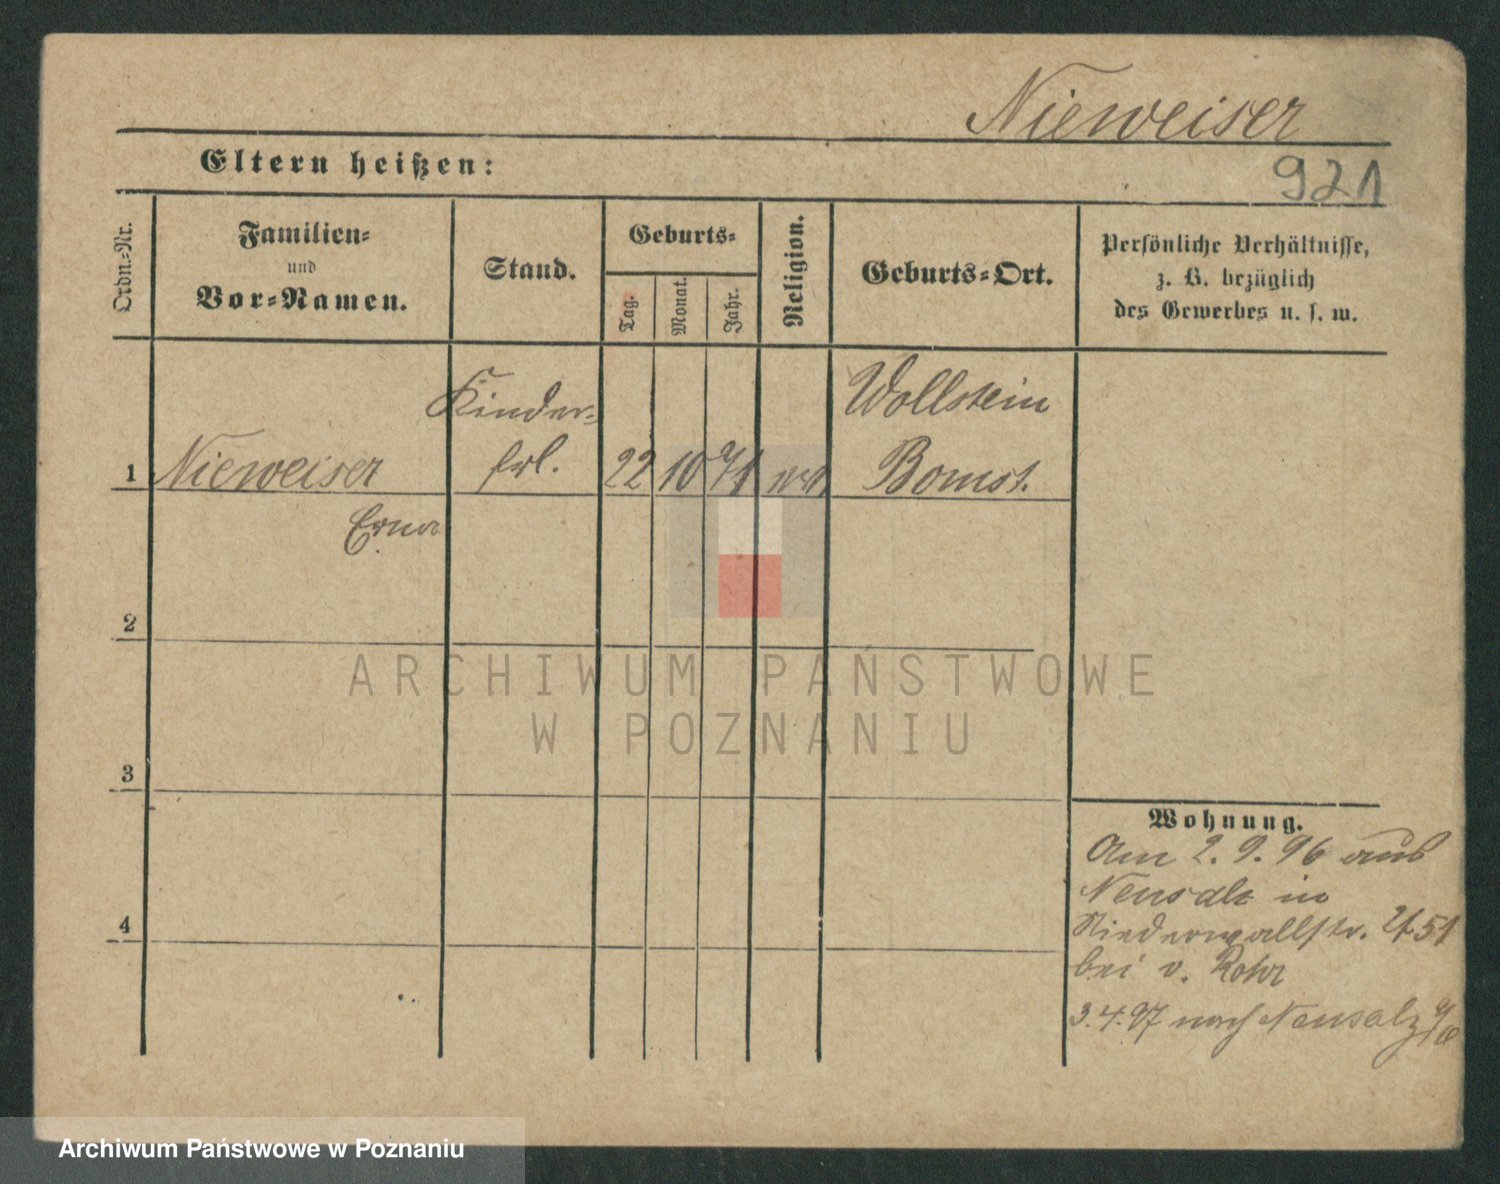 Nieweiser
921
Eltern heißen:
Ordn.-Nr.
Familien-
und
Vor-Namen.
Stand.
Geburts-
Tag.
Monat.
Jahr.
Religion.
Geburts-Ort.
Persönliche Verhältnisse,
z. B. bezüglich
des Gewerbes u. s. w.
Kinder-
Wollstein
1 Nieweiser frl. 22 10 71 Bomst.
Erna
2
3
4
Wohnung.
Am 2. 9. 96 aus
Neusalz in
Niederwallstr. 2t 51
bei v. Rohr
3.4.97 nach Neusalz a/O
ARCHIWUM PAŃSTWOWE
W POZNANIU
Archiwum Państwowe w Poznaniu